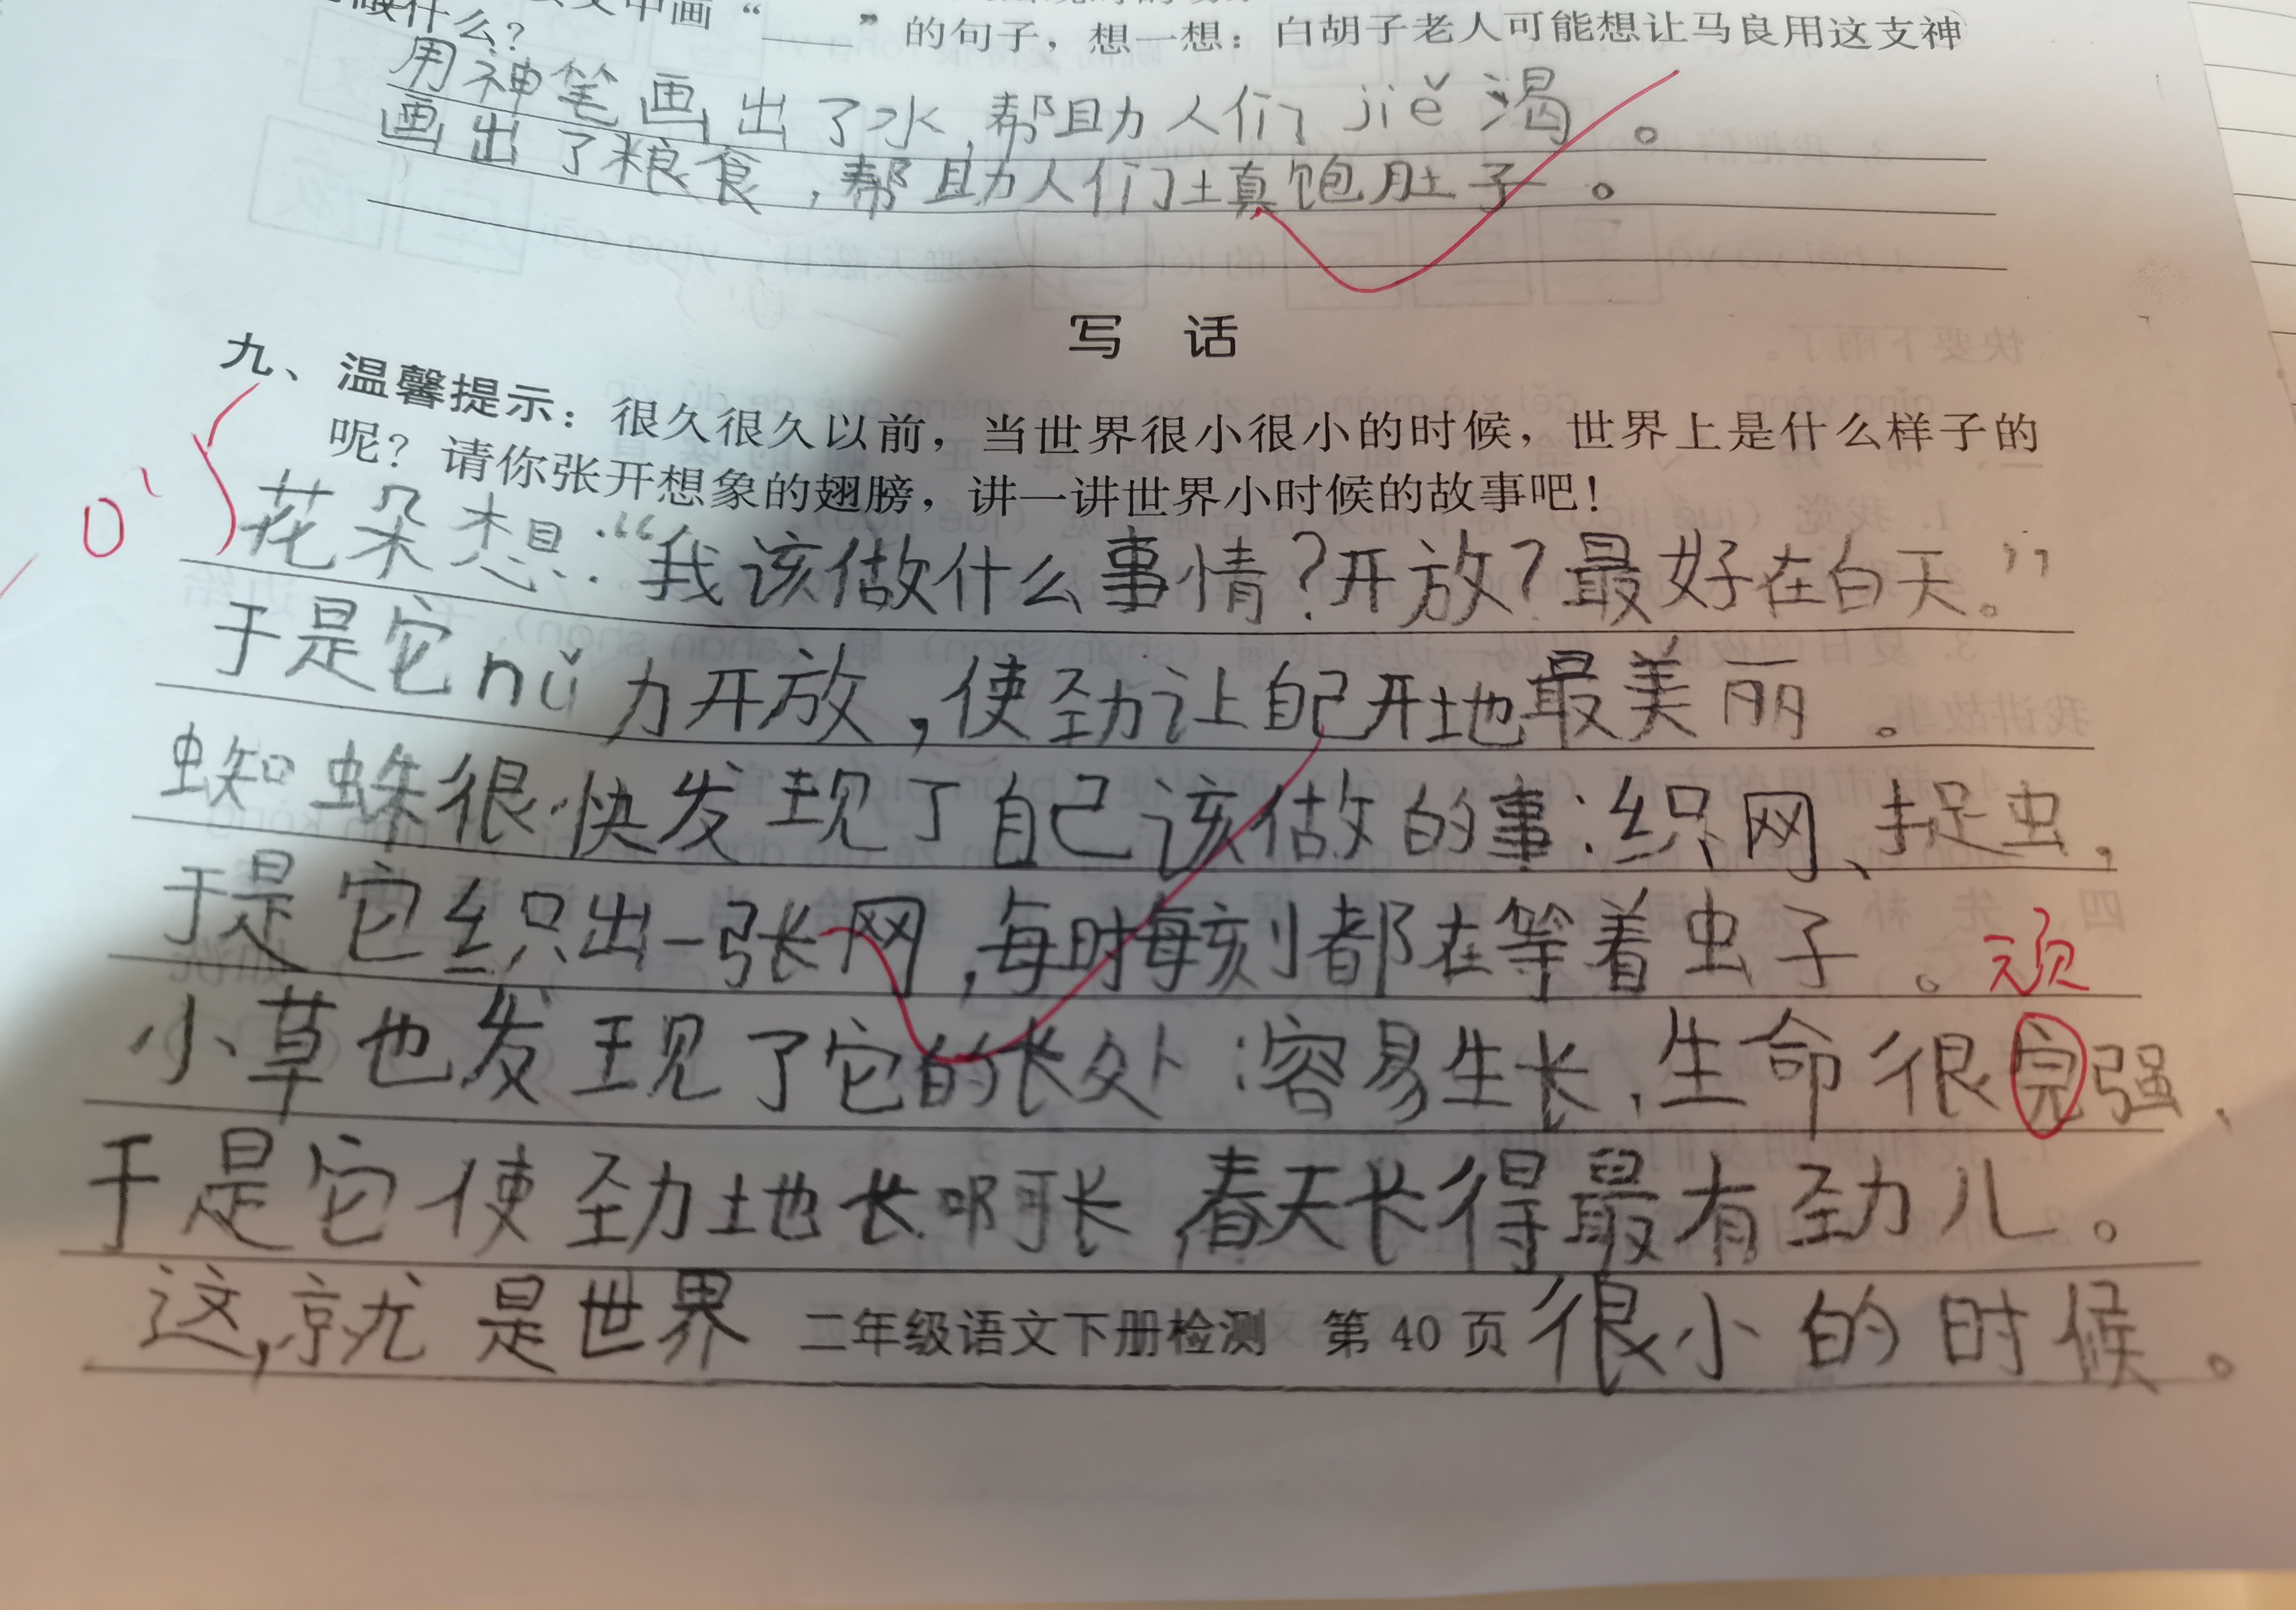 做什么？文中画“____”的句子，想一想：白胡子老人可能想让马良用这支神
用神笔画出了水，帮助人们jiě渴。
画出了粮食，帮助人们填饱肚子。
写 话
九、温馨提示：很久很久以前，当世界很小很小的时候，世界上是什么样子的
呢？请你张开想象的翅膀，讲一讲世界小时候的故事吧！
花朵想：“我该做什么事情？开放？最好在白天。”
于是它nǔ力开放，使劲让自己开地最美丽。
蜘蛛很快发现了自己该做的事：织网、捉虫，
于是它织出一张网，每时每刻都在等着虫子。
顽
小草也发现了它的长处：容易生长，生命很完强、
于是它使劲地长啊长，春天长得最有劲儿。
这，就是世界很小的时候。
二年级语文下册检测 第 40 页